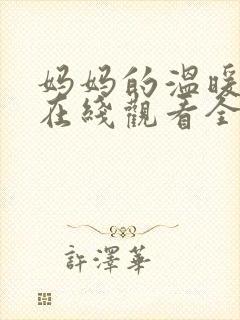 妈妈的温暖
在綫觀看全
許澤華